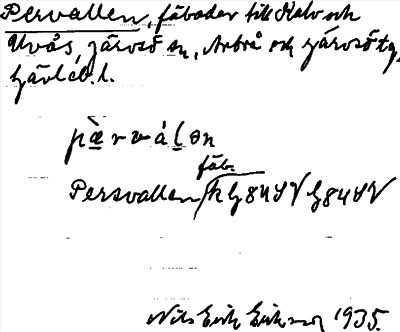 Pervallen, fäbodar till Kalv och
Uvås, Järvsö sn, Arbrå och Järvsö tg,
Gävleb. l.
pæ̀rválọn
fäb.
Persvallen (k G84SV G84SV
Nils Erik Eriksson 1935.